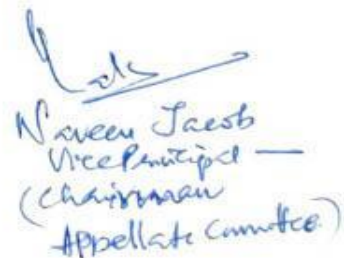 Naveen Jacob
Vice Principal —
(Chairman
Appellate Committee)